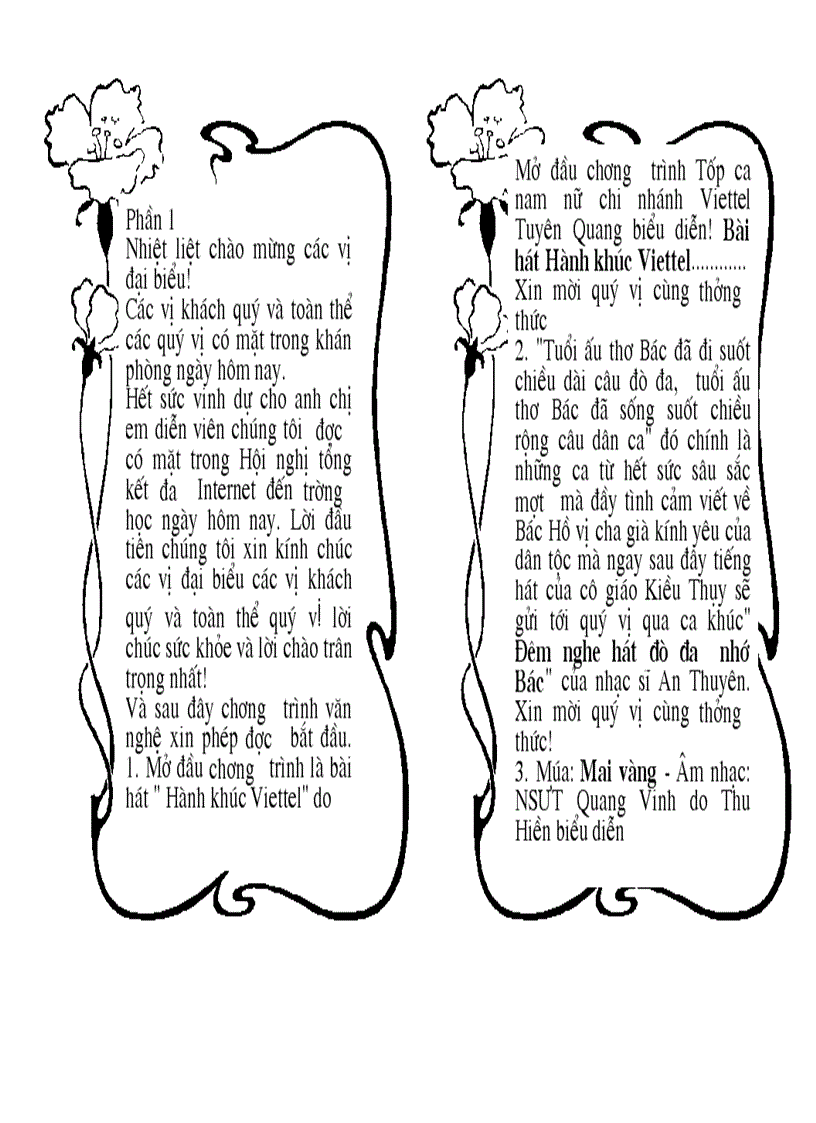 Phần 1
Nhiệt liệt chào mừng các vị
đại biểu!
Các vị khách quý và toàn thể
các quý vị có mặt trong khán
phòng ngày hôm nay.
Hết sức vinh dự cho anh chị
em diễn viên chúng tôi đợc
có mặt trong Hội nghị tổng
kết đa Internet đến trờng
học ngày hôm nay. Lời đầu
tiên chúng tôi xin kính chúc
các vị đại biểu các vị khách
quý và toàn thể quý vị lời
chúc sức khỏe và lời chào trân
trọng nhất!
Và sau đây chơng trình văn
nghệ xin phép đợc bắt đầu.
1. Mở đầu chơng trình là bài
hát " Hành khúc Viettel" do
Mở đầu chơng trình Tốp ca
nam nữ chi nhánh Viettel
Tuyên Quang biểu diễn! Bài
hát Hành khúc Viettel............
Xin mời quý vị cùng thởng
thức
2. "Tuổi ấu thơ Bác đã đi suốt
chiều dài câu đò đa, tuổi ấu
thơ Bác đã sống suốt chiều
rộng câu dân ca" đó chính là
những ca từ hết sức sâu sắc
mợt mà đầy tình cảm viết về
Bác Hồ vị cha già kính yêu của
dân tộc mà ngay sau đây tiếng
hát của cô giáo Kiều Thụy sẽ
gửi tới quý vị qua ca khúc"
Đêm nghe hát đò đa nhớ
Bác" của nhạc sĩ An Thuyên.
Xin mời quý vị cùng thởng
thức!
3. Múa: Mai vàng - Âm nhạc:
NSƯT Quang Vinh do Thu
Hiền biểu diễn